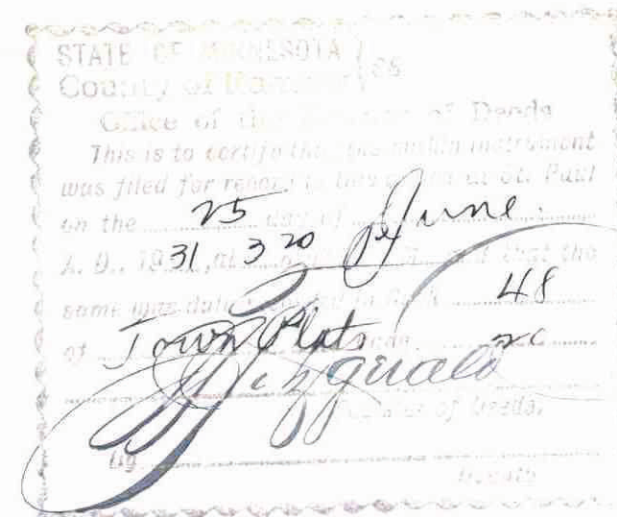 STATE OF MINNESOTA } SS
County of Ramsey
Office of the Register of Deeds
This is to certify that the within instrument
was filed for record in this office at St. Paul
on the 25 day of June.
A. D., 1931, at 3 20 and that the
same was duly recorded in Book 48
of Town Plats page
Fitzgerald
Register of Deeds.
By
Deputy